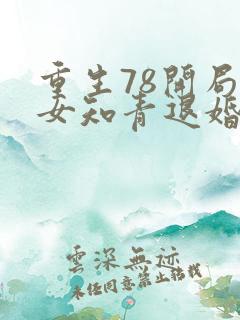 重生78開局
女知青退婚
雲深無迹
未任同意禁止轉載